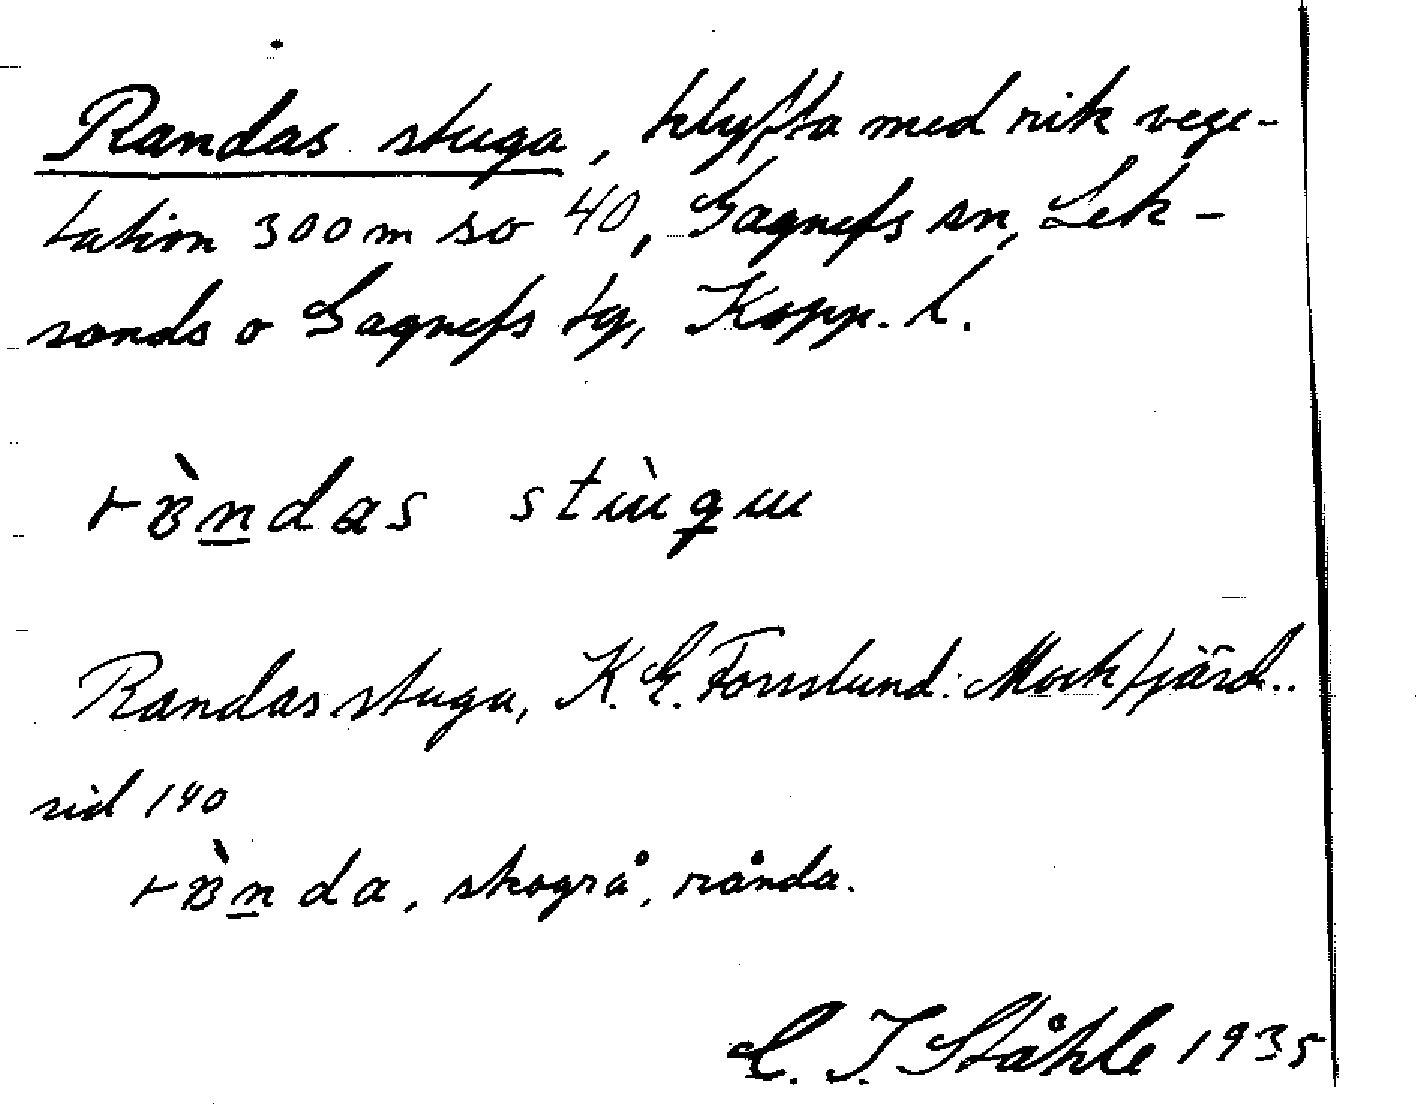 Randas stuga, klyfta med rik vege-
tation 300 m so 40, Gagnefs sn, Lek-
sands o Gagnefs tg, Kopp. l.
rɞ̀n̲das stɯ̀gɯ
Randas stuga, K. E. Forsslund: Mockfjärd..
sid 140
rɞ̀n̲da, skogrå, rånda.
C. I. Ståhle 1935